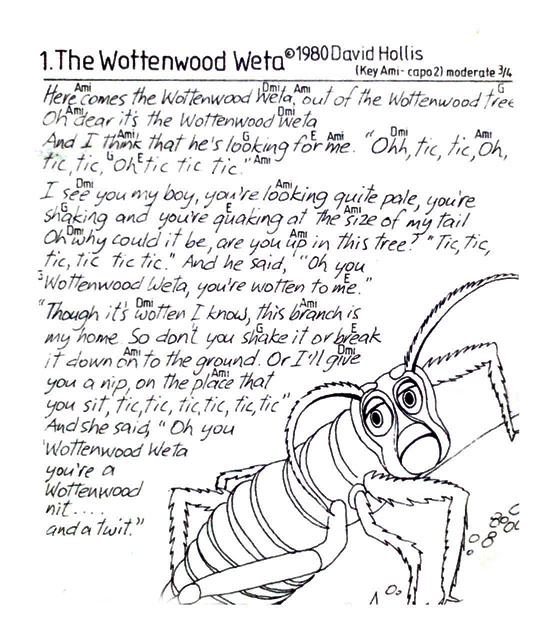 1. The Wottenwood Weta ©1980 David Hollis
(Key Ami - capo 2) moderate 3/4
Ami Dmi Ami G
Here comes the Wottenwood Weta, out of the Wottenwood tree
Ami Dmi
Oh dear it's the Wottenwood Weta
Ami G E Ami Dmi Ami
And I think that he's looking for me. "Ohh, tic, tic, Oh,
G E Ami
tic, tic, Oh tic tic tic."
Dmi Ami
I see you my boy, you're looking quite pale, you're
G E Ami
shaking and you're quaking at the size of my tail
Dmi Ami
Oh why could it be, are you up in this tree? "Tic, tic,
tic, tic tic tic." And he said, "Oh you
G E
Wottenwood Weta, you're wotten to me."
Dmi Ami
"Though it's wotten I know, this branch is
G E
my home. So don't you shake it or break
Ami Dmi
it down on to the ground. Or I'll give
Ami
you a nip, on the place that
you sit, tic, tic, tic, tic, tic, tic"
And she said, "Oh you
Wottenwood Weta
you're a
Wottenwood
nit....
and a twit."